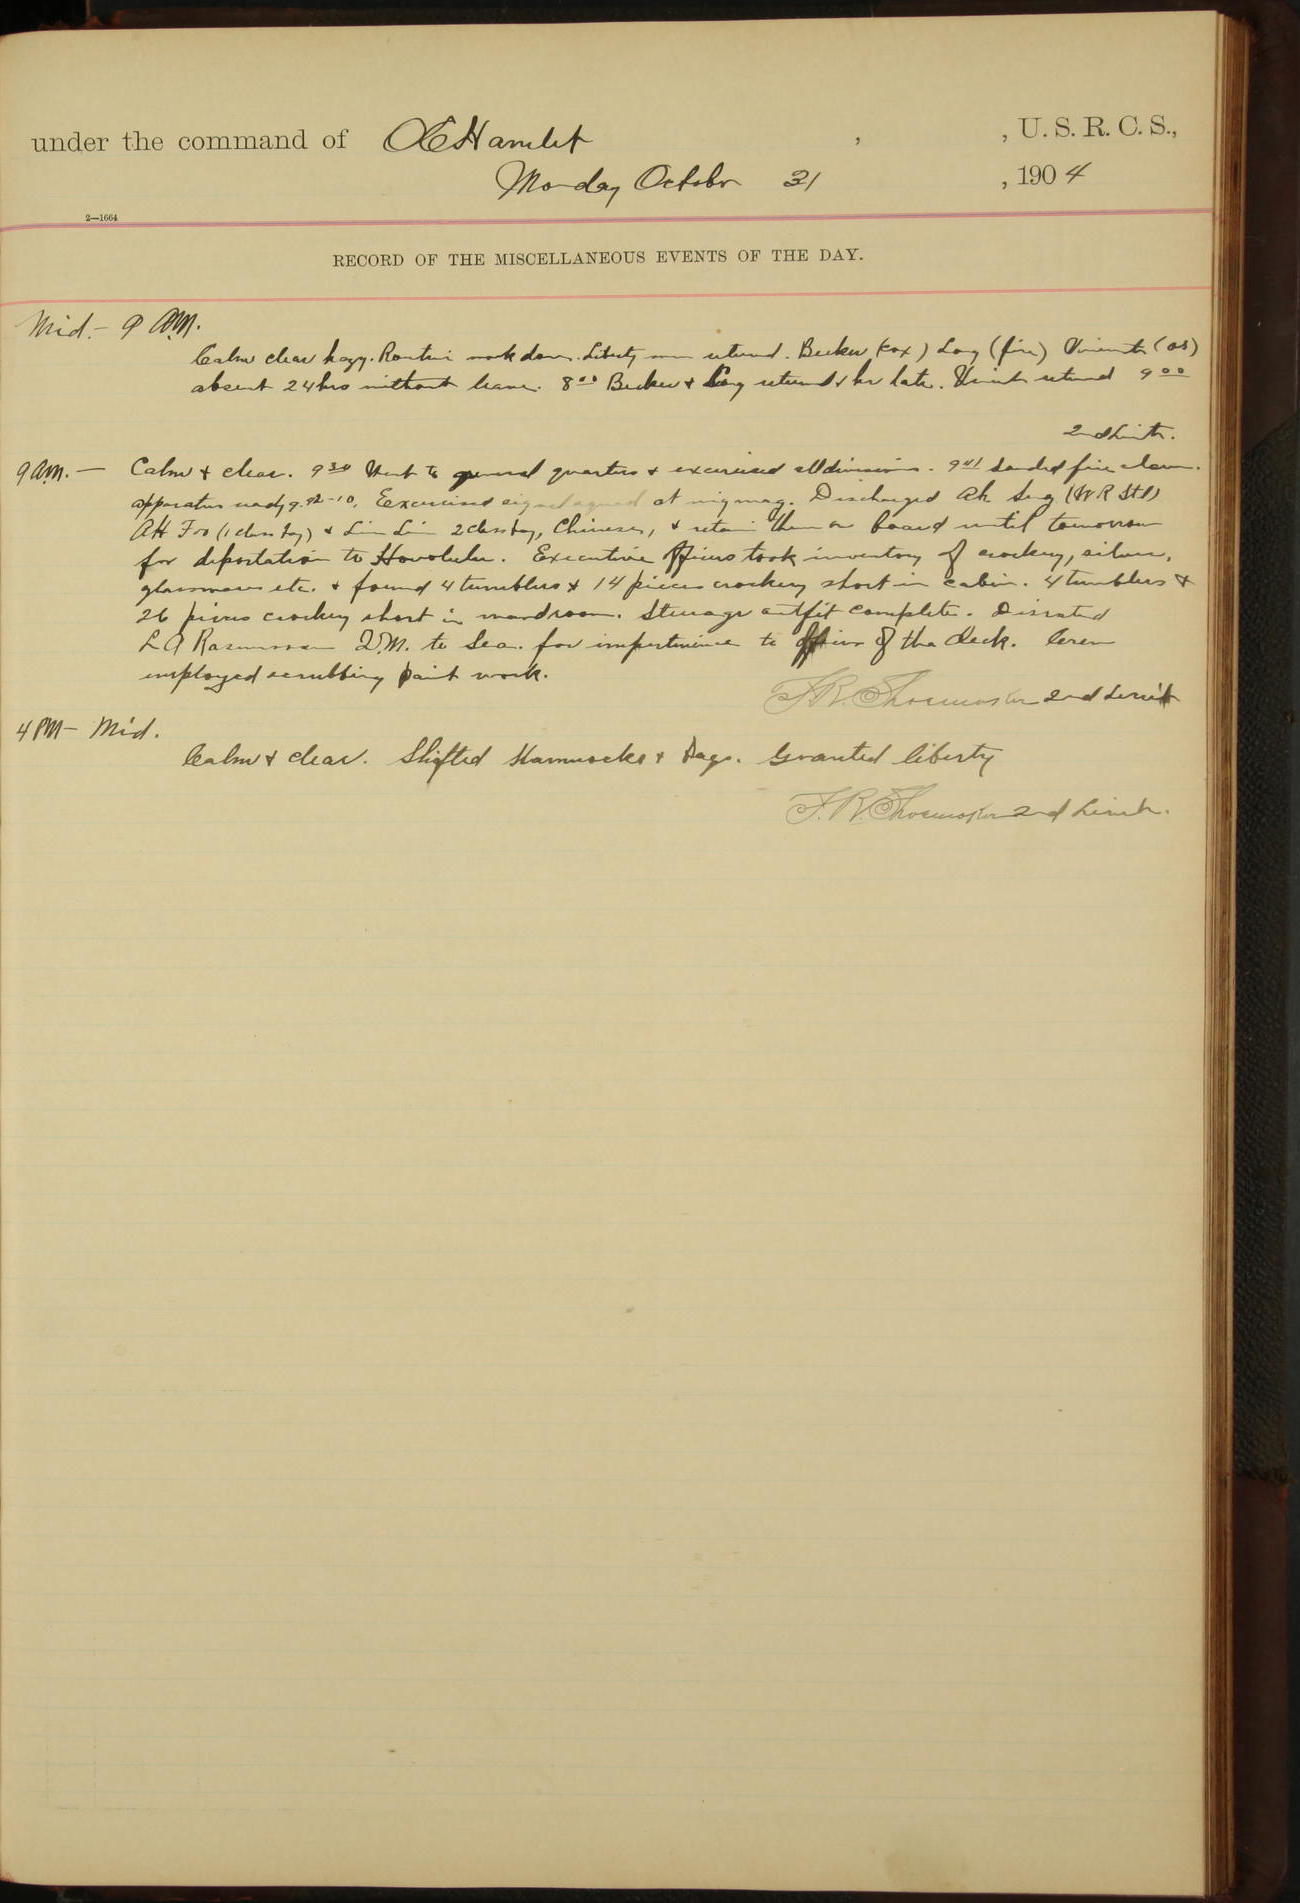 under the command of OCHamlet , , U. S. R. C. S.,
Monday October 31 , 1904
2—1664
RECORD OF THE MISCELLANEOUS EVENTS OF THE DAY.
Mid. - 9 AM.
Calm clear hazy. Routine work done. Liberty men returned. Becker (cox) Long (fire) Vincent (os)
absent 24 hrs without leave. 8 00 Becker & Long returned hr late. Vincent returned 9 00
2nd Lieut.
9 AM. — Calm & clear. 9 30 Went to general quarters & exercised all divisions. 9 41 Sounded fire alarm.
apparatus ready Exercised at wigwag. Discharged Ah Sing (W R Std)
AH Foo (1 class boy) & Lin Lin 2 class boy, Chinese, & retain them on board until tomorrow
for deportation to Honolulu. Executive Officers took inventory of crockery, silver,
glassware etc. & found 4 tumblers & 14 pieces crockery short in cabin. 4 tumblers &
26 pieces crockery short in wardroom. Steerage outfit complete. Disrated
L A Rasmussen Q.M. to Sea. for impertinence to officer of the deck. Crew
employed scrubbing paint work.
F.R. Shoemaker 2nd Lieut
4 PM - Mid.
Calm & clear. Shifted Hammocks & bags. Granted liberty
F.R. Shoemaker 2nd Lieut.